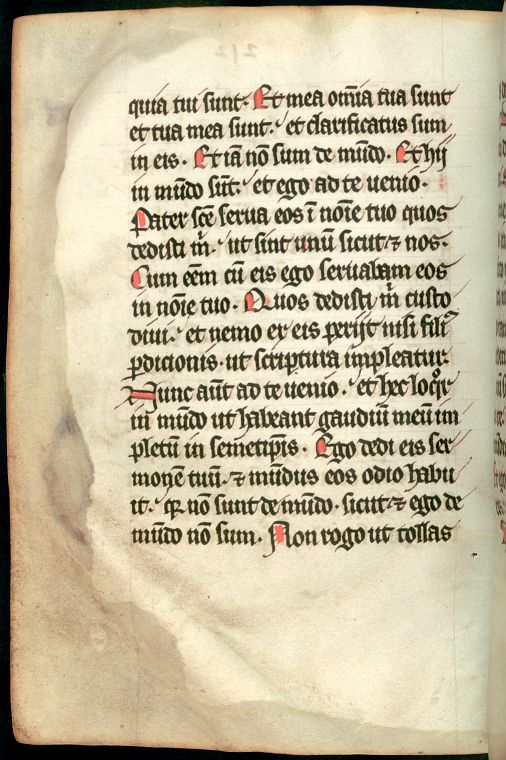 quia tui sunt. Et mea om̄ia tua sunt
et tua mea sunt. et clarificatus sum
in eis. Et iā nō sum de mūdo. Et hij
in mūdo sūt. et ego ad te uenio.
Pater sc̄e serua eos ī noīe tuo quos
dedisti m̄. ut sint unū sicut ⁊ nos.
Cum eēm cū eis ego seruabam eos
in noīe tuo. Quos dedisti m̄ custo
diui. et nemo ex eis ꝑijt nisi fili᷒
ꝑdicionis. ut scriptura impleatur
Nunc aūt ad te uenio. et hec loqͦr
in mūdo ut habeant gaudiū meū im
pletū in semetip̄is. Ego dedi eis ser
monē tuū. ⁊ mūdus eos odio habu
it. qꝛ nō sunt de mūdo. sicut ⁊ ego de
mūdo nō sum. Non rogo ut tollas